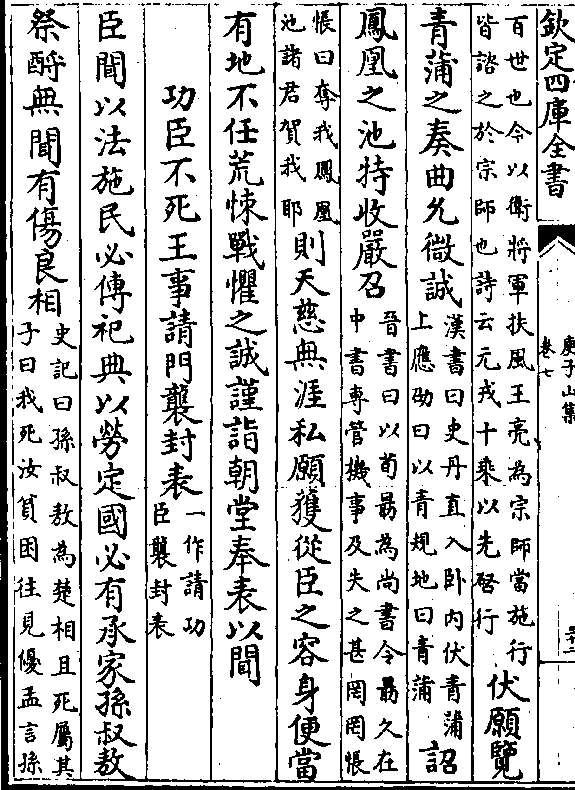 欽定四庫全書
庾子山集
卷七
百世也今以衛將軍扶風王亮為宗師當施行
皆諮之於宗師也詩云元戎十乘以先啓行
伏願覽
青蒲之奏曲允微誠
漢書曰史丹直入卧内伏青蒲
上應劭曰以青規地曰青蒲
詔
鳳凰之池特收嚴召
晉書曰以荀朂為尚書令朂久在
中書專管機事及失之甚罔罔悵
悵曰奪我鳳凰
池諸君賀我耶
則天慈無涯私願獲從臣之容身便當
有地不任荒悚戰懼之誠謹詣朝堂奉表以聞
功臣不死王事請門襲封表
一作請功
臣襲封表
臣聞以法施民必傳祀典以勞定國必有承家孫叔敖
祭酹無聞有傷良相
史記曰孫叔敖為楚相且死屬其
子曰我死汝貧困往見優孟言孫